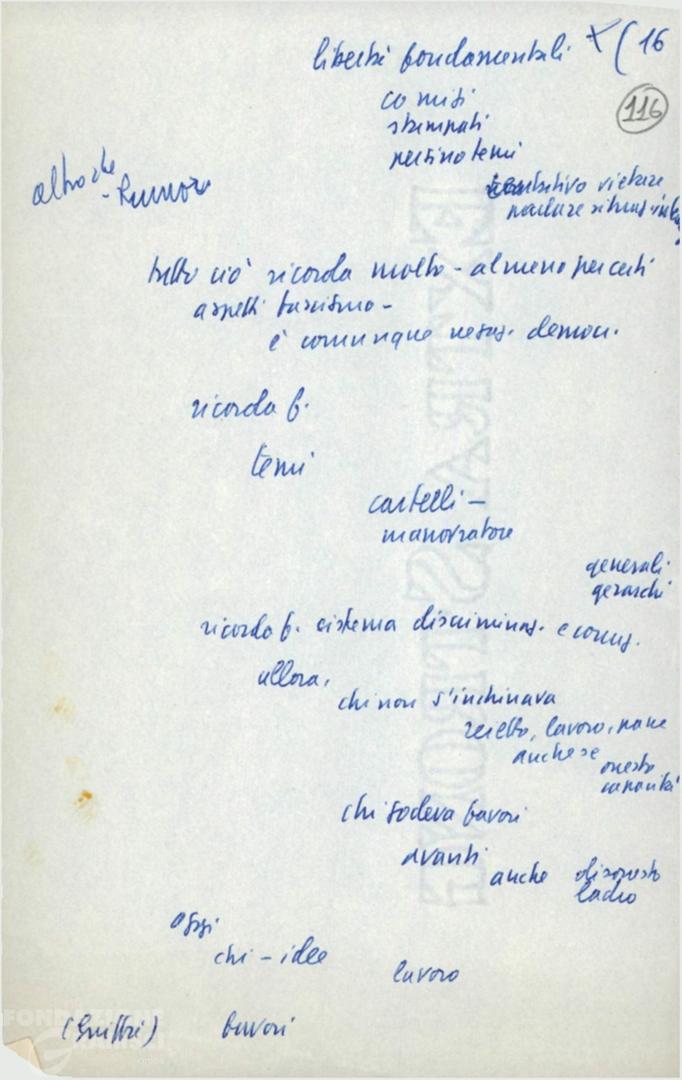 libertà fondamentali X (16
116
comizi
stampati
persino temi
tentativo vietare
altro che
- Rumor
tutto ciò ricorda molto - almeno per certi
aspetti fascismo -
è comunque negaz. democr.
ricorda f.
temi
cartelli -
manovratore
generali
gerarchi
ricorda f. sistema discriminaz. e corruz.
allora,
chi non s'inchinava
reietto, lavoro, pane
anche se
onesto
capacità
chi godeva favori
avanti
anche disonesto
ladro
oggi
chi - idee
lavoro
(Giuffrè) favori
EXTRA STRONG
FONDAZIONE
GRAMSCI